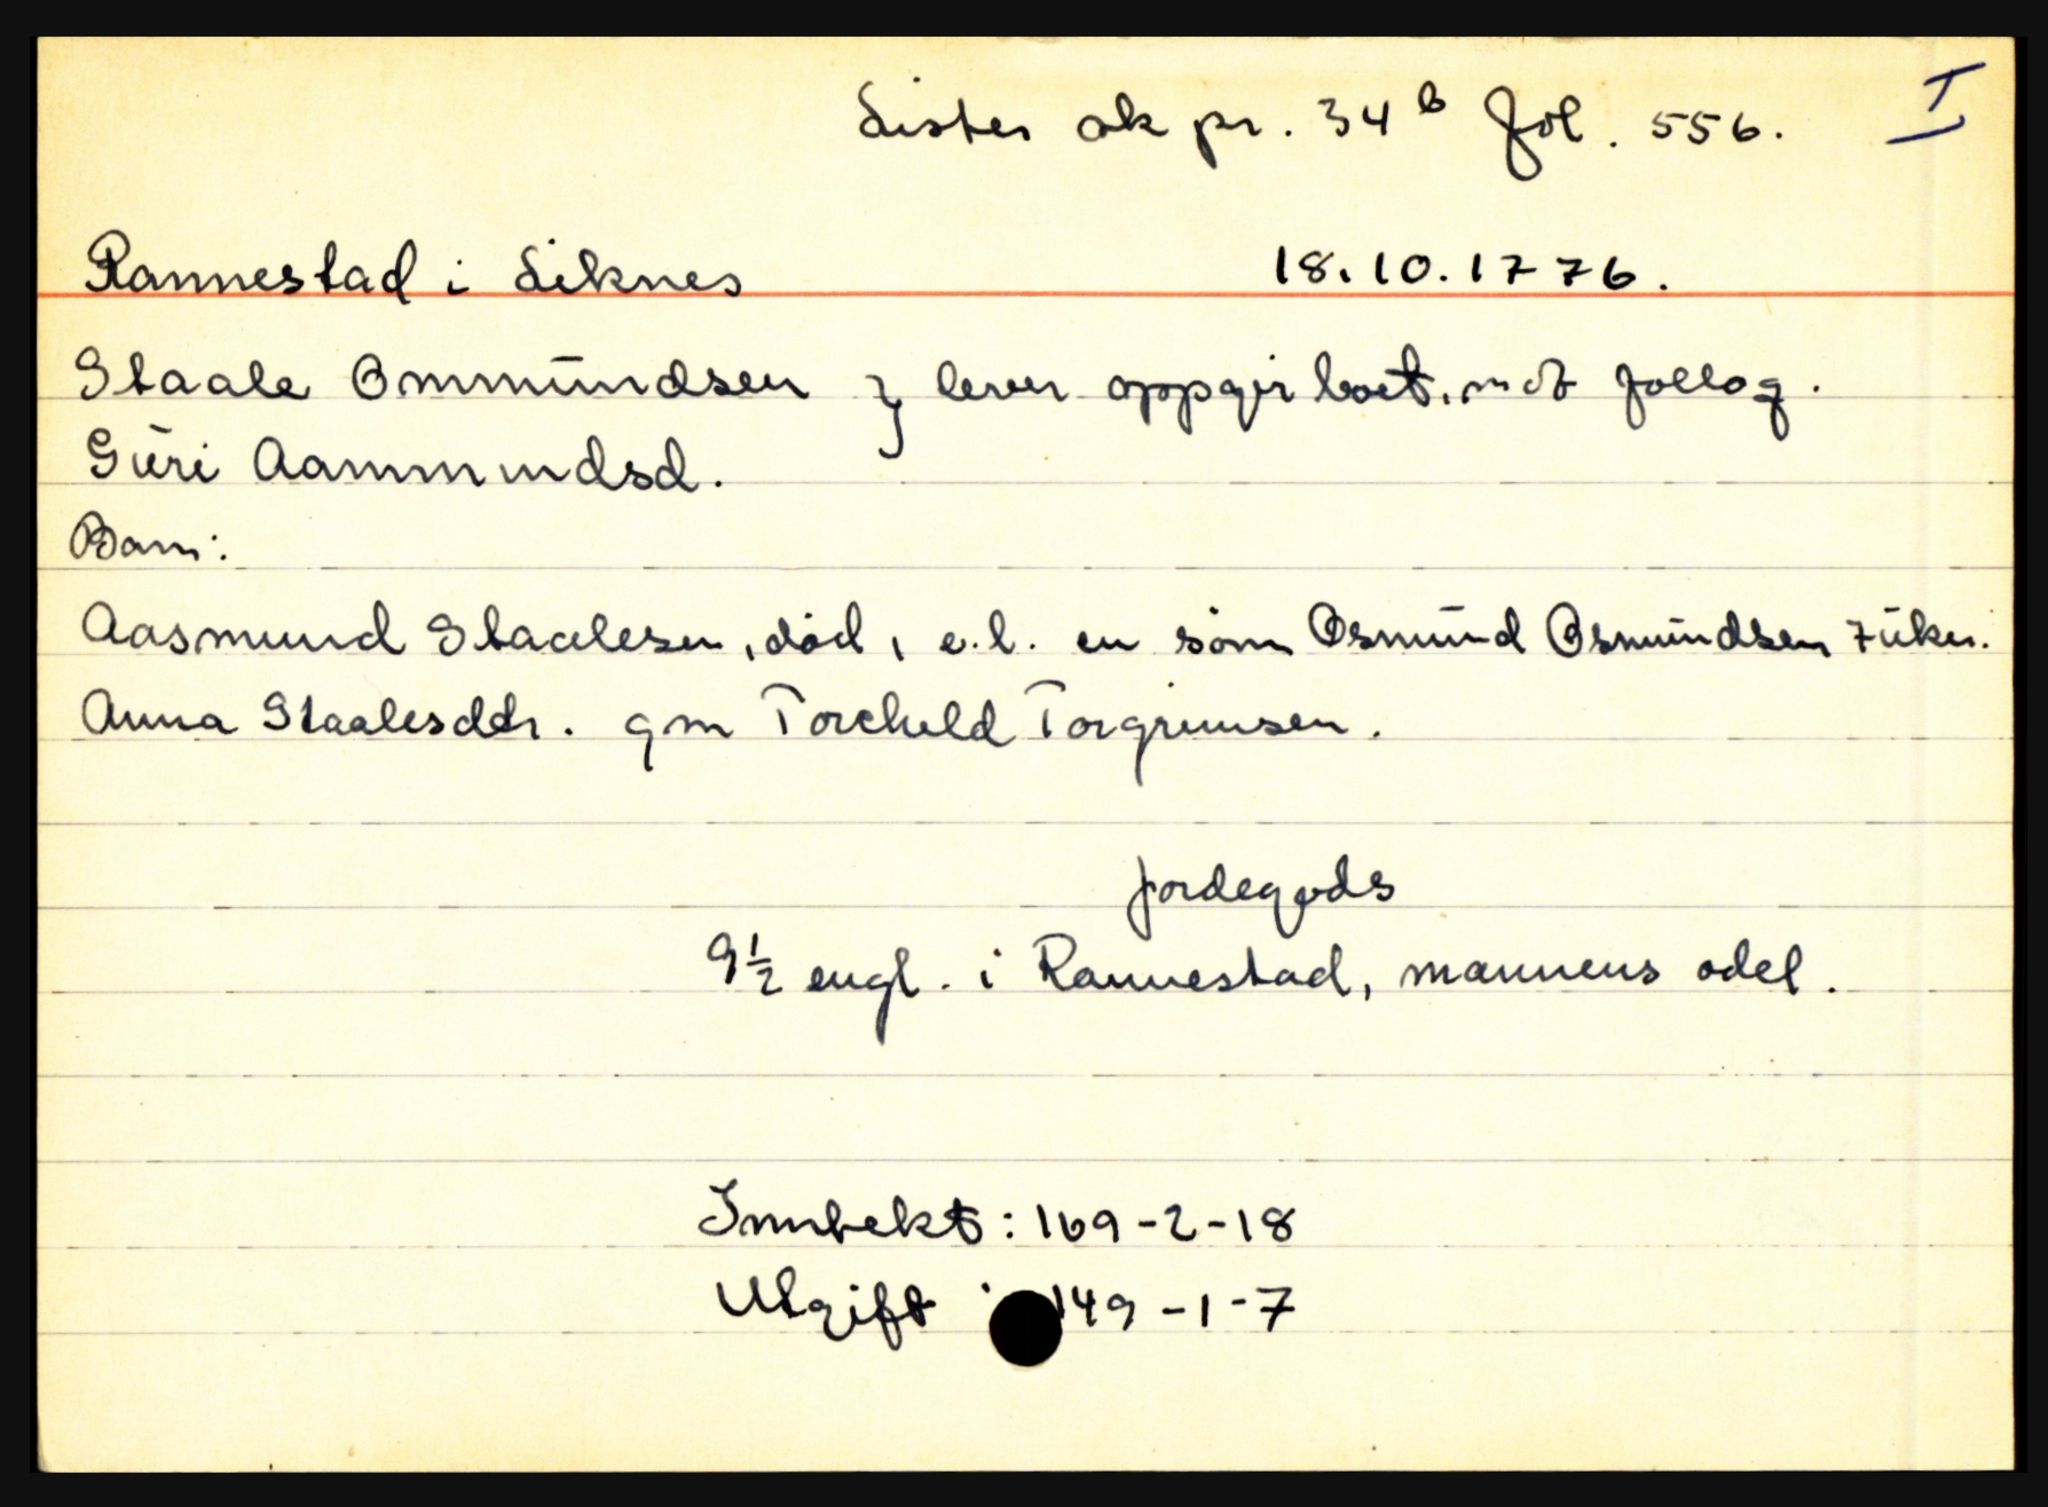 Lister sk pr. 34 b fol. 556. I
Rannestad i Liknes 18.10.1776.
Staale Ommundsen } lever oppgir boet. mot follog.
Guri Aammundsd.
Barn:
Aasmund Staalesen, död, e.l. en sönn Osmund Osmundsen 7 uker.
Anna Staalesdtr. gm Torcheld Torgrimsen.
Jordegods
9½ engl. i Rannestad, mannens odel.
Inntekt: 169-2-18
Utgift : 149-1-7